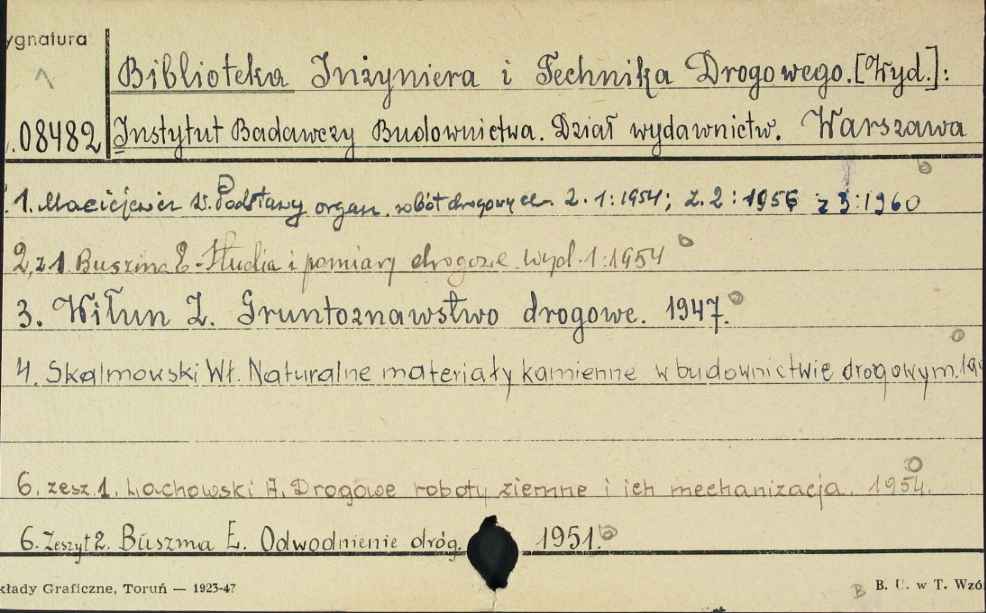 ygnatura
Biblioteka Inżyniera i Technika Drogowego. [Wyd.]:
.08482 Instytut Badawczy Budownictwa. Dział wydawnictw. Warszawa
1. Maciejewicz W. Podstawy organ. robót drogowych. z. 1:1954; z. 2:1956 z 3:1960
2, z 1 Buszma E - Studia i pomiary drogowe wyd. 1:1954
3. Wiłun Z. Gruntoznawstwo drogowe. 1947.
4. Skalmowski Wł. Naturalne materiały kamienne w budownictwie drogowym.
6. zesz. 1. Lachowski A. Drogowe roboty ziemne i ich mechanizacja. 1954.
6. Zeszyt 2. Buszma E. Odwodnienie dróg. 1951.
kłady Graficzne, Toruń — 1923-47
B. U. w T. Wzó